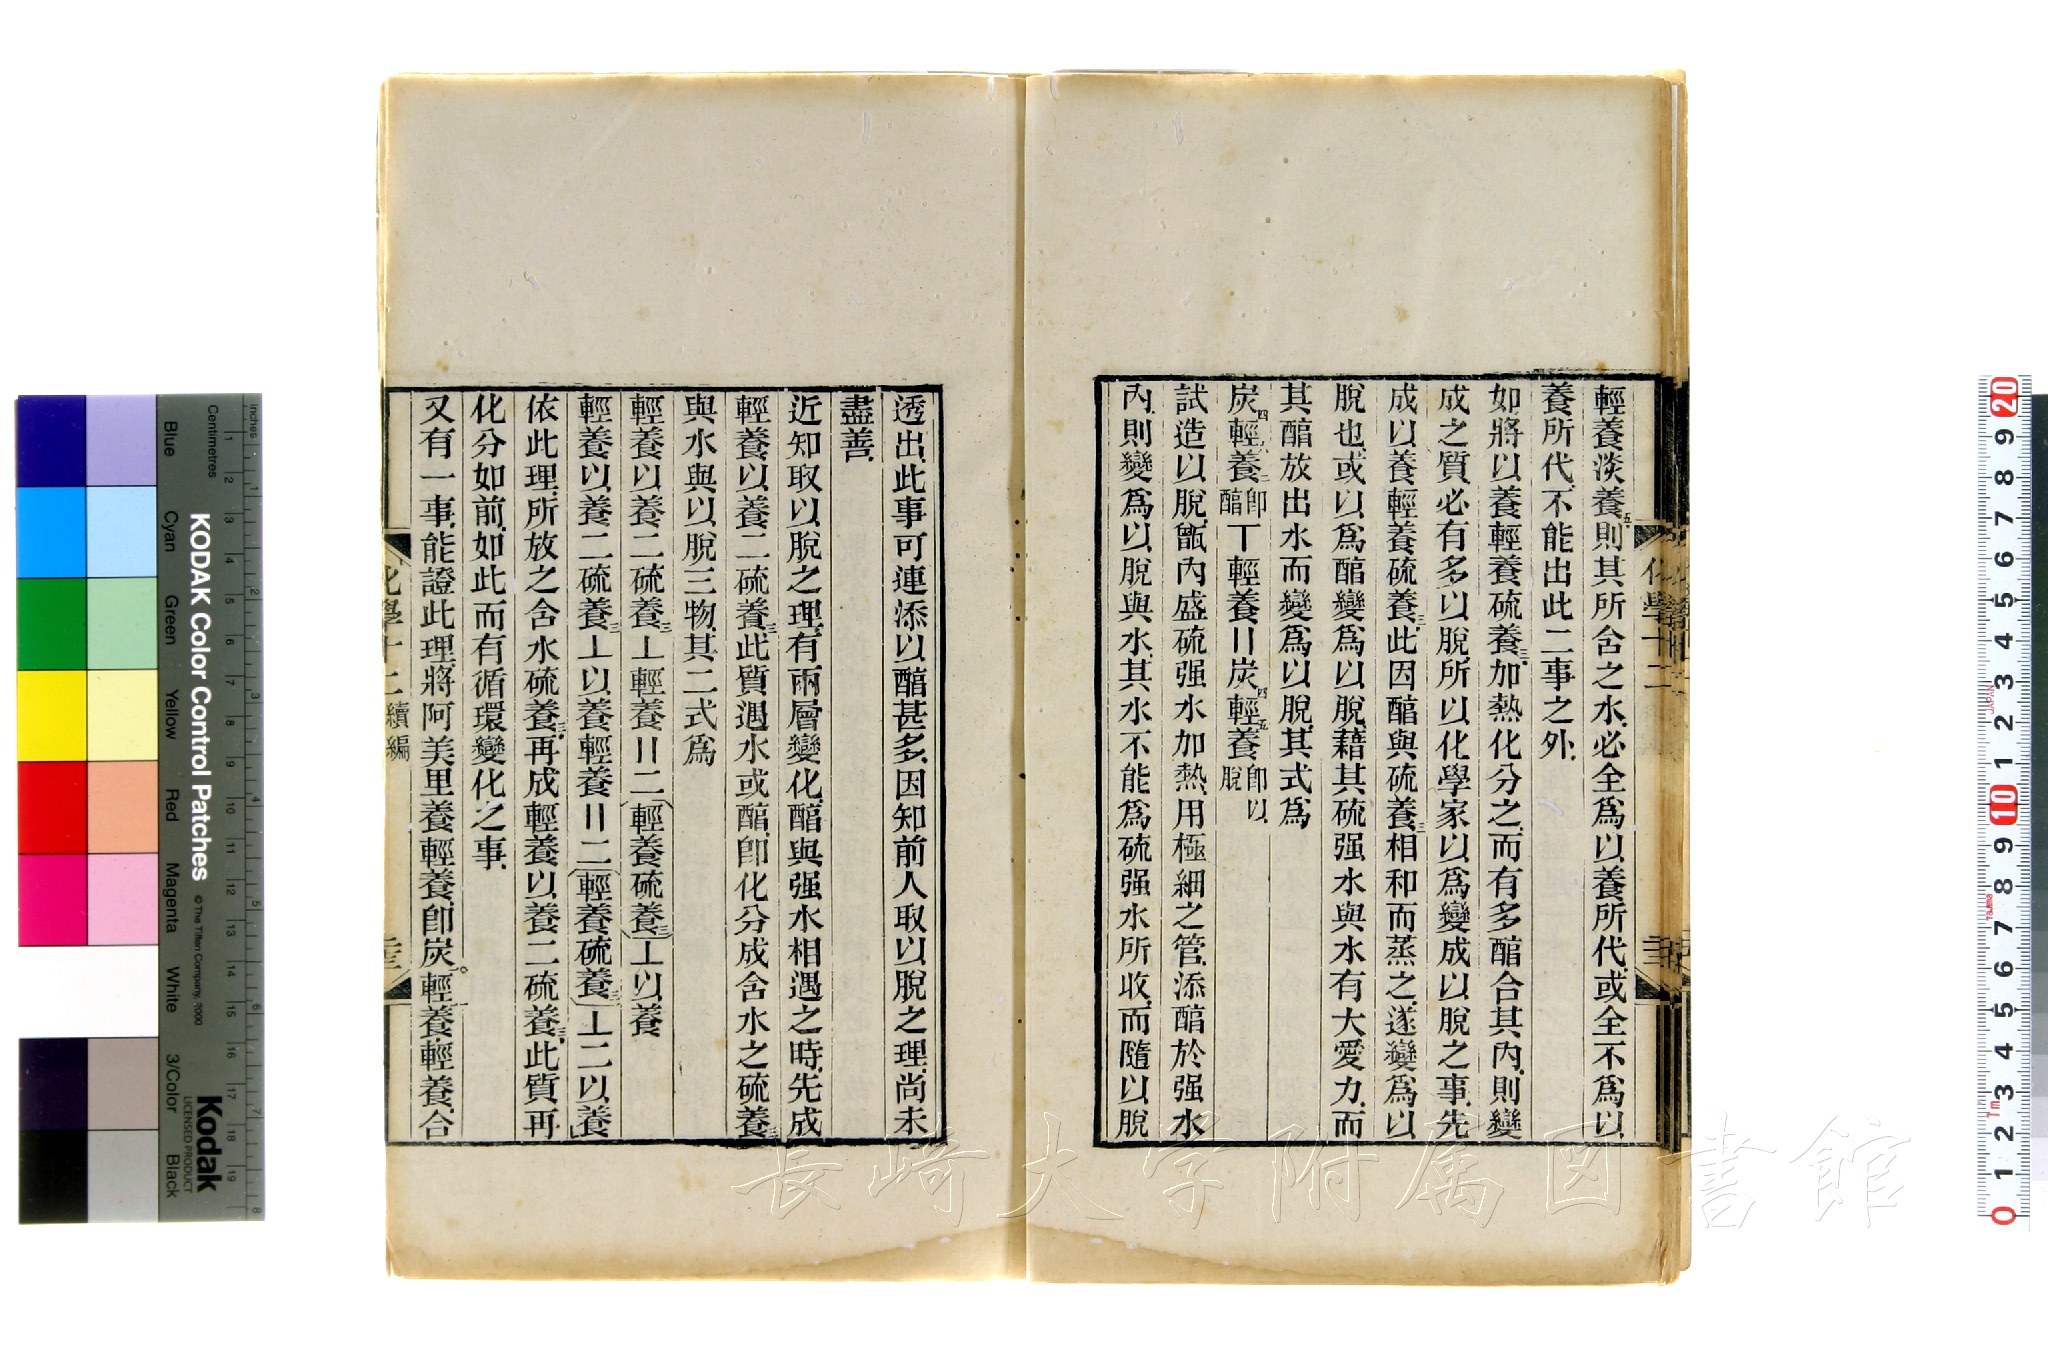 輕養淡養五則其所含之水必全爲以養所代或全不爲以
養所代不能出此二事之外
如將以養輕養硫養三加熱化分之而有多醕合其內則變
成之質必有多以脫所以化學家以爲變成以脫之事先
成以養輕養硫養三此因醕與硫養三相和而蒸之遂變爲以
脫也或以爲醕變爲以脫藉其硫强水與水有大愛力而
其醕放出水而變爲以脫其式爲
炭四輕六養二卽醕丅輕養〢炭四輕五養卽以脫
試造以脫甑內盛硫强水加熱用極細之管添醕於强水
內則變爲以脫與水其水不能爲硫强水所收而隨以脫
化學十二
透出此事可連添以醕甚多因知前人取以脫之理尚未
盡善
近知取以脫之理有兩層變化醕與强水相遇之時先成
輕養以養二硫養三此質遇水或醕卽化分成含水之硫養三
與水與以脫三物其二式爲
輕養以養二硫養三丄輕養〢二(輕養硫養三)丄以養
輕養以養二硫養三丄以養輕養〢二(輕養硫養三)丄二以養
依此理所放之含水硫養三再成輕養以養二硫養三此質再
化分如前如此而有循環變化之事
又有一事能證此理將阿美里養輕養卽炭輕養輕養合
化學十二續編
KODAK Color Control Patches
© The Tiffen Company, 2000
Kodak
LICENSED PRODUCT
Inches
Centimetres
Blue
Cyan
Green
Yellow
Red
Magenta
White
3/Color
Black
長崎大学附属図書館